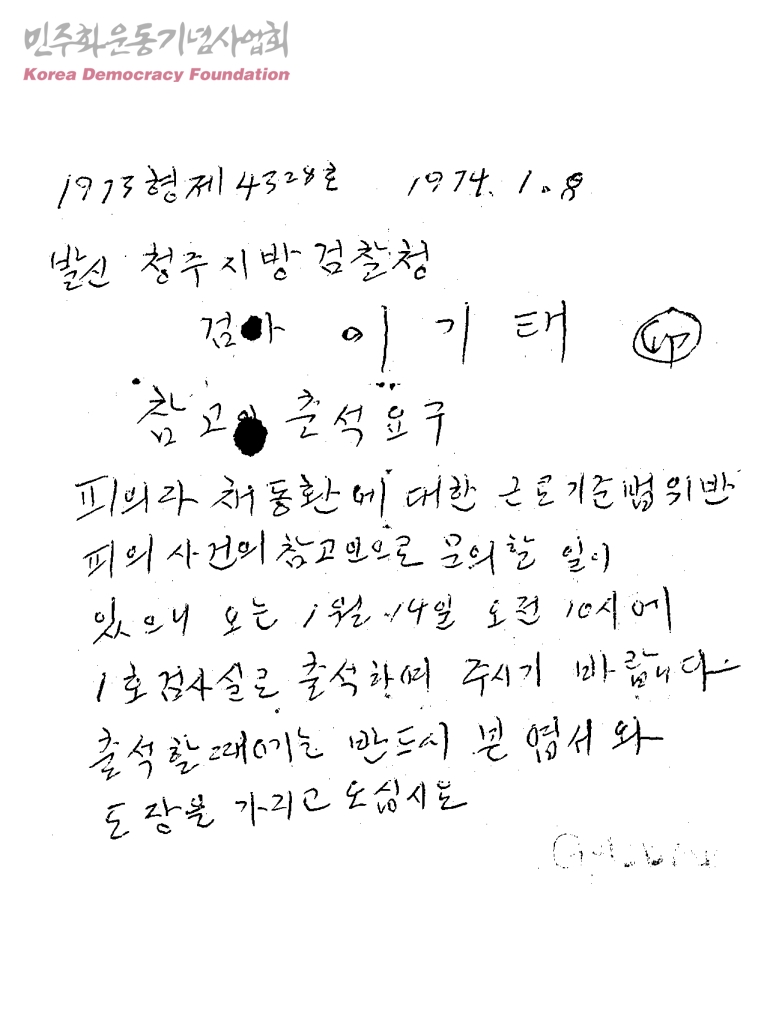 민주화운동기념사업회
Korea Democracy Foundation
1973형제4328호 1974. 1. 8
발신 청주지방검찰청
검사 이기태 印
참고인 출석요구
피의자 채동환에 대한 근로기준법위반
피의사건의 참고인으로 문의할 일이
있으니 오는 1월 14일 오전 10시에
1호검사실로 출석하여 주시기 바랍니다
출석할 때에는 반드시 본 엽서와
도장을 가리고 오십시요